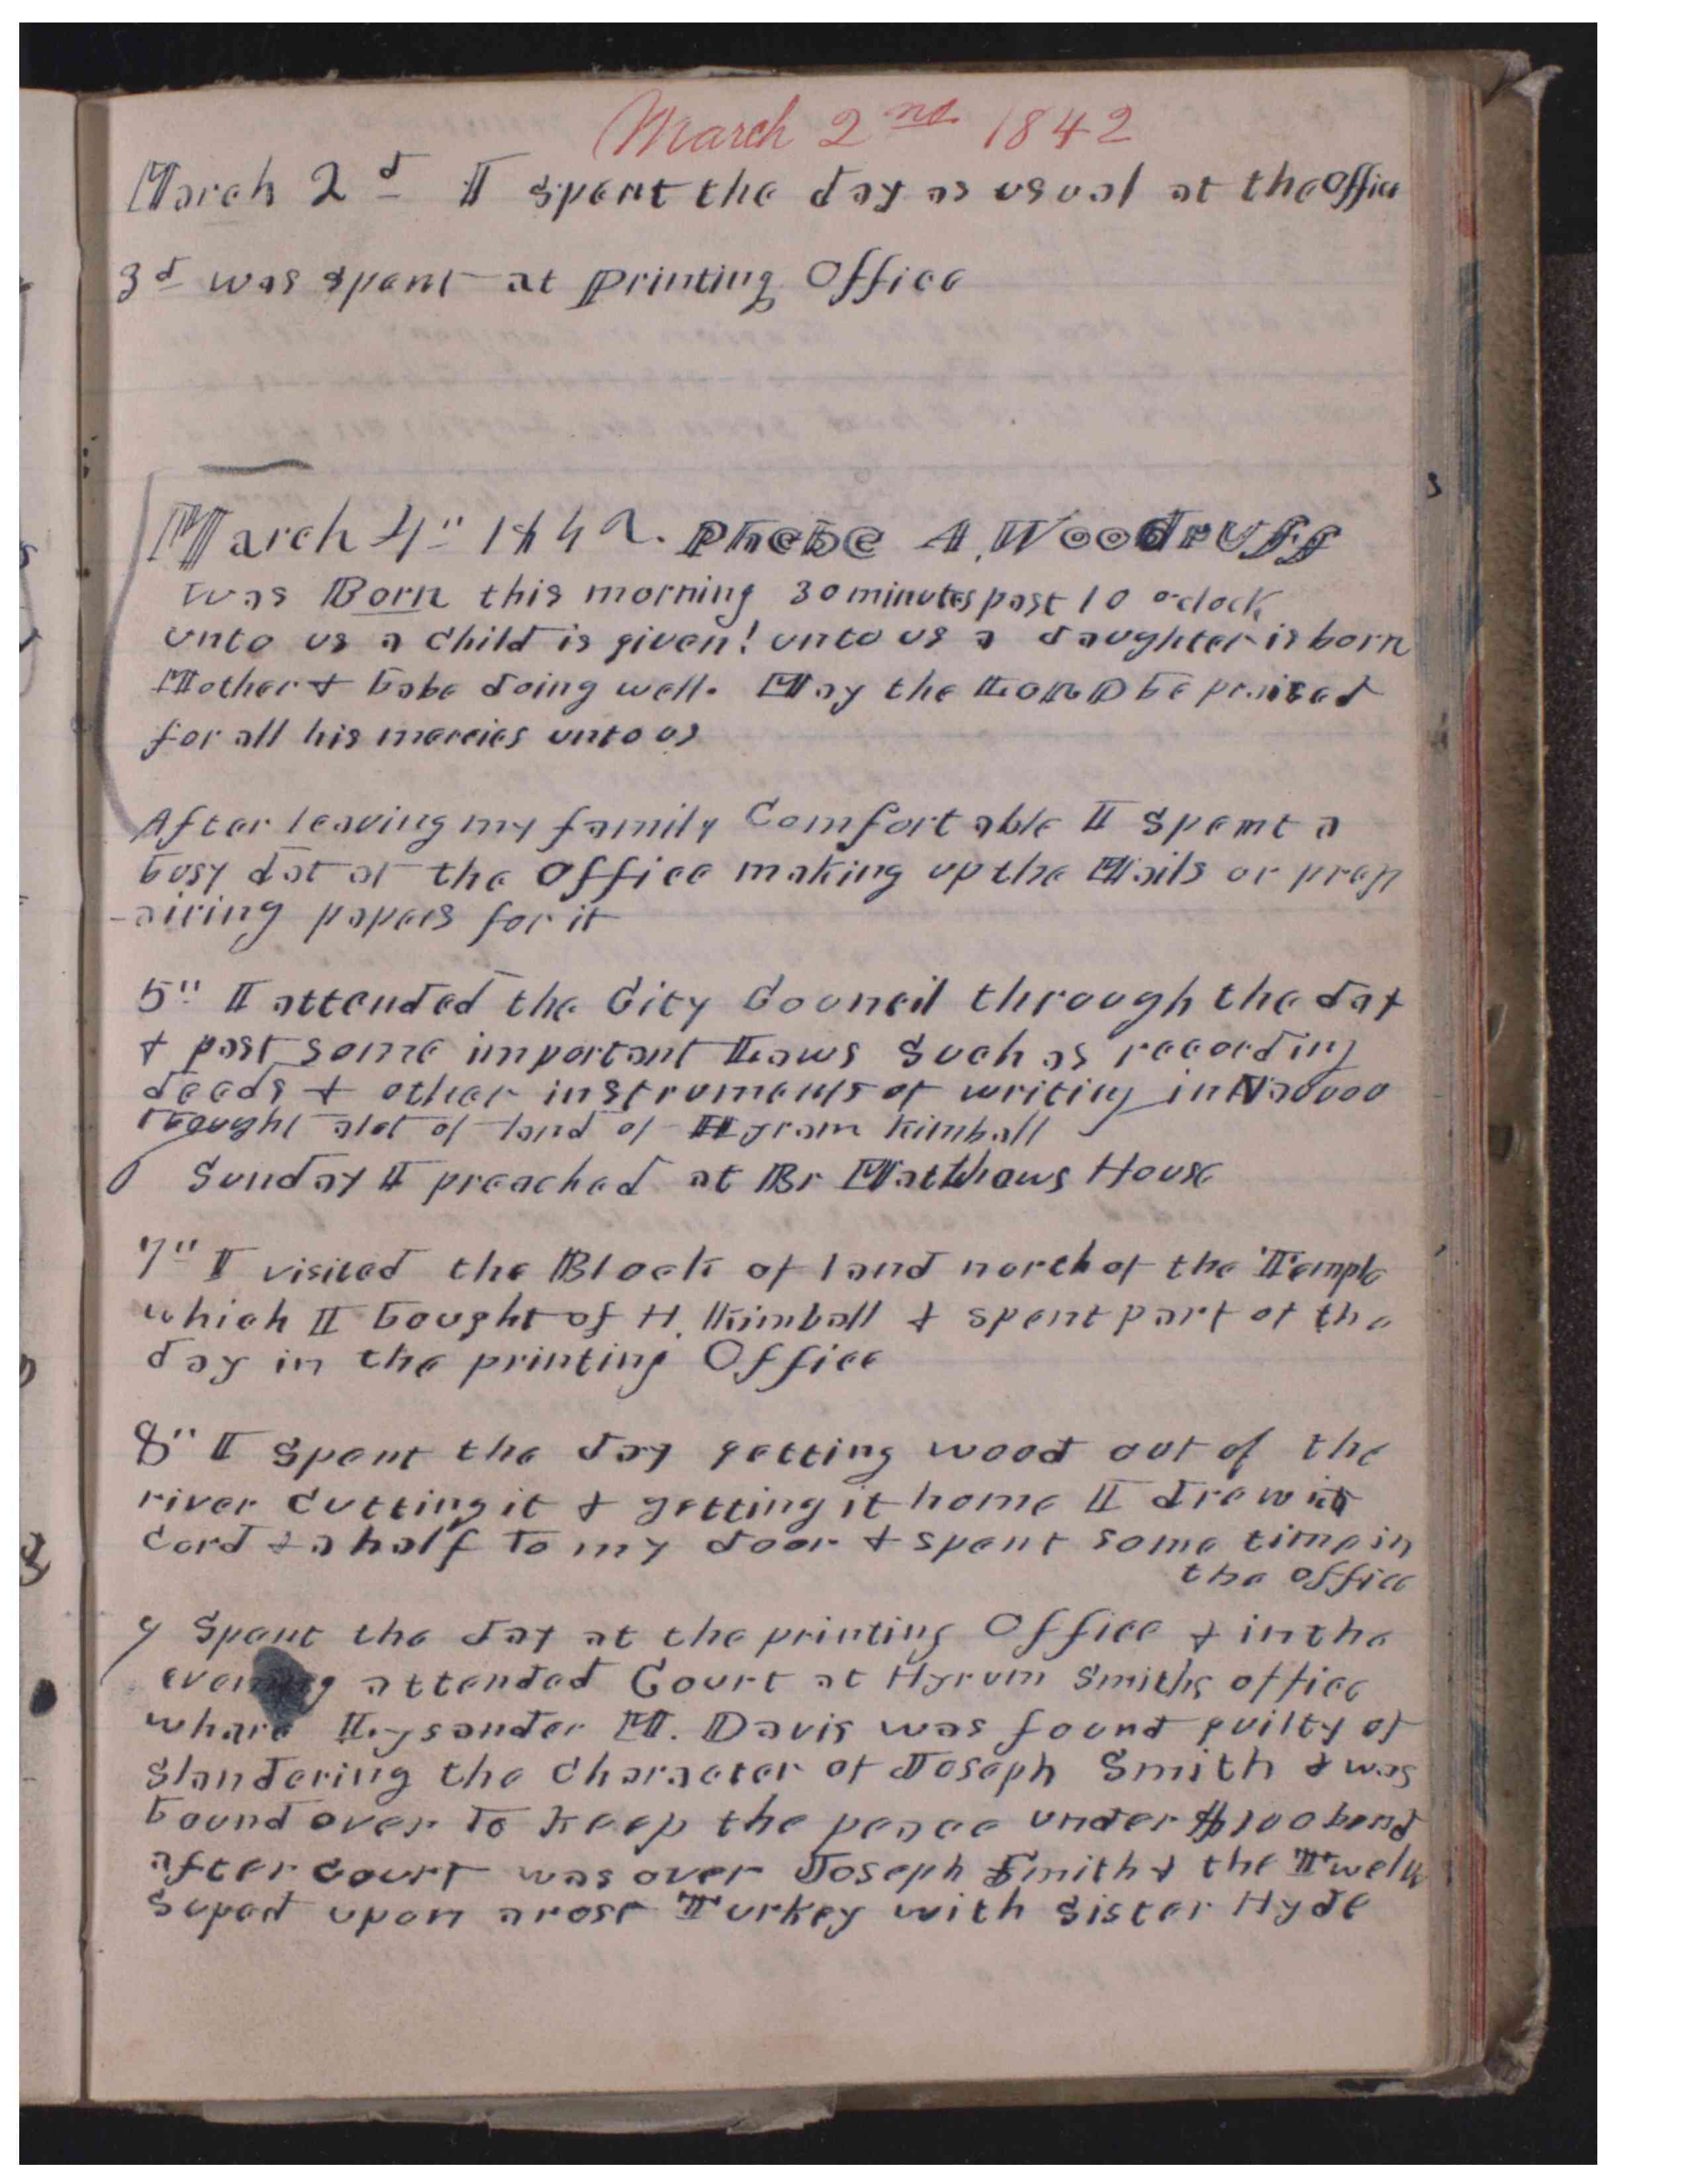 March 2nd 1842
March 2d I spent the day as usual at the office
3d was spent at Printing Office
March 4" 1842. Phebe A. Woodruff
was Born this morning 30 minutes past 10 oclock
unto us a child is given! unto us a daughter is born
Mother & babe doing well. May the LORD be praised
for all his mercies unto us
After leaving my family Comfortable I spemt a
busy dat at the Office making up the Mails or prep
-airing papers for it
5" I attended the City Council through the day
& past some important Laws Such as recording
deeds & other instruments of writing in Nauvoo
bought a lot of land of Hyram Kimball
6 Sunday I preached at Br Matthews House
7" I visited the Block of land north of the Temple
which I bought of H. Kimball & spent part of the
day in the printing Office
8" I spent the day getting wood out of the
river cutting it & getting it home I drew
cord & a half to my door & spent some time in
the office
9 Spent the day at the printing Office & in the
evening attended Court at Hyrum Smiths office
whare Lysander M. Davis was found guilty of
Slandering the Character of Joseph Smith & was
bound over to keep the peace under $100 bond
after court was over Joseph Smith & the Twelve
Suped upon a rost Turkey with Sister Hyde